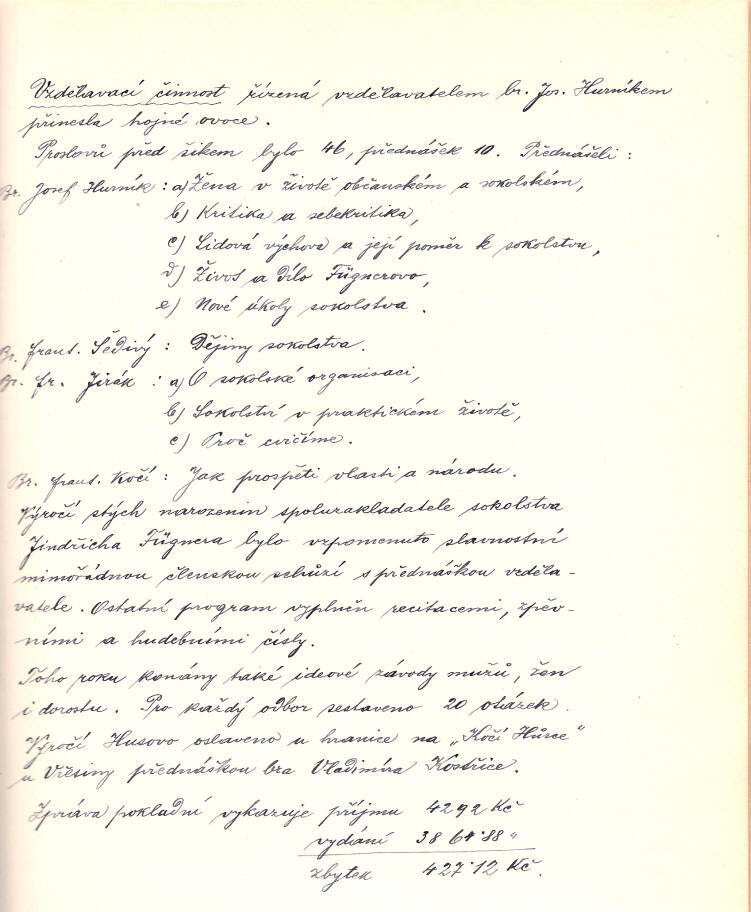 Vzdělavací činnost řízená vzdělavatelem br. Jos. Hurníkem
přinesla hojné ovoce.
Proslovů před šikem bylo 46, přednášek 10. Přednášeli:
Br. Josef Hurník: a) Žena v životě občanském a sokolském,
b) Kritika a sebekritika,
c) Lidová výchova a její poměr k sokolstvu,
d) Život a dílo Fügnerovo,
e) Nové úkoly sokolstva.
Br. Frant. Šedivý: Dějiny sokolstva.
Br. Fr. Jirák: a) O sokolské organisaci,
b) Sokolství v praktickém životě,
c) Proč cvičíme.
Br. Frant. Kočí: Jak prospěti vlasti a národu.
Výročí stých narozenin spoluzakladatele sokolstva
Jindřicha Fügnera bylo vzpomenuto slavnostní
mimořádnou členskou schůzí s přednáškou vzděla-
vatele. Ostatní program vyplněn recitacemi, zpěv-
ními a hudebními čísly.
Toho roku konány také ideové závody mužů, žen
i dorostu. Pro každý odbor sestaveno 20 otázek.
Výročí Husovo oslaveno u hranice na „Kočí Hůrce"
u Vřesiny přednáškou bra Vladimíra Kostřice.
Zpráva pokladní vykazuje příjmu 4292 Kč
vydání 3864·88 „
zbytek 427·12 Kč.